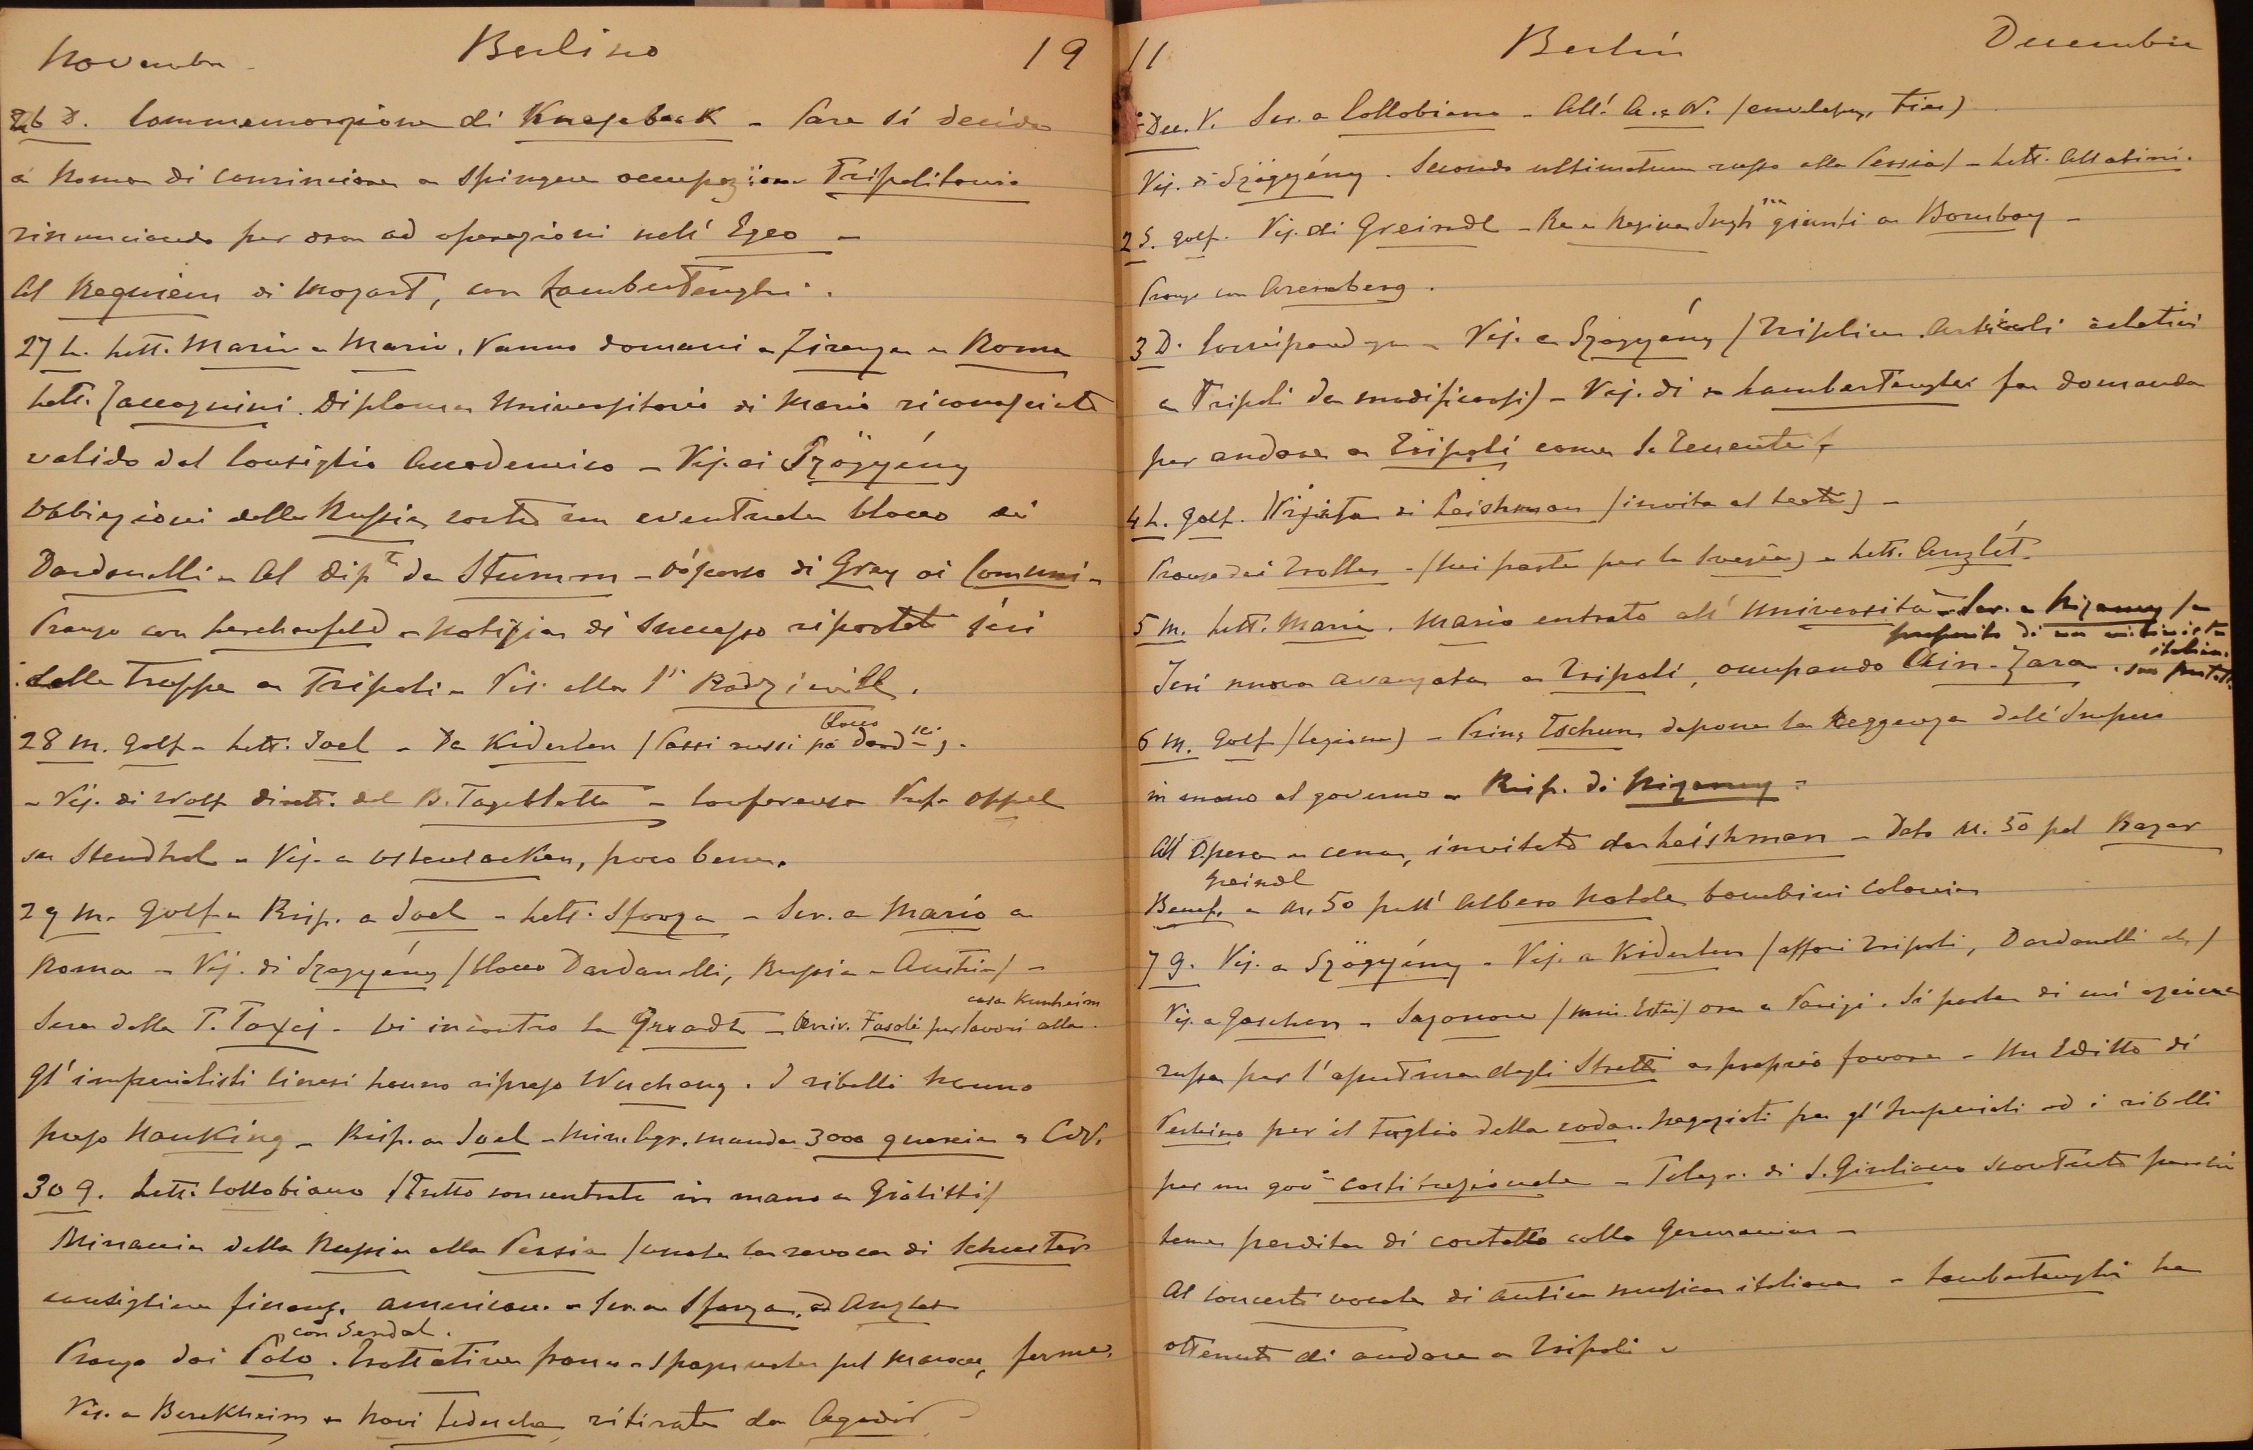 Novembre Berlino 19
26 D. Commemorazione di Knesebeck - Pare si decida
a Roma di cominciare a spingere occupazione Tripolitania
rinunciando per ora ad operazioni nell'Egeo -
Al Requiem di Mozart, con Lambertenghi.
27 L. Lett. Maria e Mario. Vanno domani a Firenze e Roma
Lett. Zaccagnini. Diploma Universitario di Mario riconosciuto
valido dal Consiglio Accademico - Vis. di Szögyény
Obbiezioni della Russia contro un eventuale blocco dei
Dardanelli - Al Dipt da Stumm - discorso di Grey ai Comuni -
Pranzo con Lerchenfeld - Notizia di successo riportato ieri
dalle truppe a Tripoli - Vis. alla Pssa Radziwill.
28 M. Golf - Lett. Joel - Da Kiderlen (Passi russi pel blocco Dardlli).
- Vis. di Wolf dirett. del B. Tageblatt - Conferenza Prof. Oppel
su Stendhal - Vis. a Ostensacken, poco bene.
29 M. Golf - Risp. a Joel - Lett. Sforza - Scr. a Mario a
Roma - Vis. di Szögyény (blocco Dardanelli, Russia - Austria) -
Sera dalla P. Taxis - Vi incontro la - Arriv. Fasoli per lavori alla casa Kunheim
Gl'imperialisti cinesi hanno ripreso Wuchang. I ribelli hanno
preso Nanking - Risp. a Joel - Min. manda 3000 a
30 G. Lett. Collobiano (Tutto concentrato in mano a Giolitti)
Minaccia della Russia alla Persia (vuole la revoca di Schuster
consigliere finanz. americano - Scr. a Sforza, ad Anzlet
Pranzo dai Polo con Sendal. Trattative franco-spagnuole pel Marocco, ferme.
Vis. a Berckheim - Navi tedesche ritirate da Agadir -
11 Berlin Decembre
1 Dec. V. Scr. a Collobiano - All' A. e W.
Vis. di Szögyény. Secondo ultimatum russo alla Persia) - Lett. Allatini.
2 S. Golf. Vis. di Greindl - Re e Regina Inghrra giunti a Bombay -
Pranzo con Arenberg.
3 D. Corrispondza - Vis. a Szögyény (Triplice. Articoli relativi
a Tripoli da modificarsi) - Vis. di Lambertenghi fa domanda
per andare a Tripoli come S. Tenente)
4 L. Golf. Visita di Leishman (invito al teatro) -
Pranzo dai Trolle - (lui parte per la Svezia) - Lett. Anzlet.
5 M. Lett. Maria. Mario entrato all'Università - Scr. a Nizamy (a
proposito di un italian. suo
Ieri nuova avanzata a Tripoli, occupando Ain-Zara
6 M. Golf (lezione) - Prin. Tschun depone la Reggenza dell'Impero
in mano al governo - Risp. di Nizamy -
All'Opera e cena, invitato da Leishman - Dato M. 50 pel Bazar
Benef. Greindl e M. 50 pell'Albero Natale bambini Colonia
7 G. Vis. a Szögyény - Vis. a Kiderlen (affari Tripoli, Dardanelli etc)
Vis. a Goschen - Sazonow (Min. Esteri) ora a Parigi. Si parla di un'azione
russa per l'apertura degli Stretti a proprio favore - Un Editto di
Pechino per il taglio della coda. Negoziati fra gl'Imperiali ed i ribelli
per un govo costituzionale - Telegr. di S. Giuliano perchè
teme perdita di contatto colla Germania -
Al Concerto vocale di antica musica italiana - Lambertenghi ha
ottenuto di andare a Tripoli -